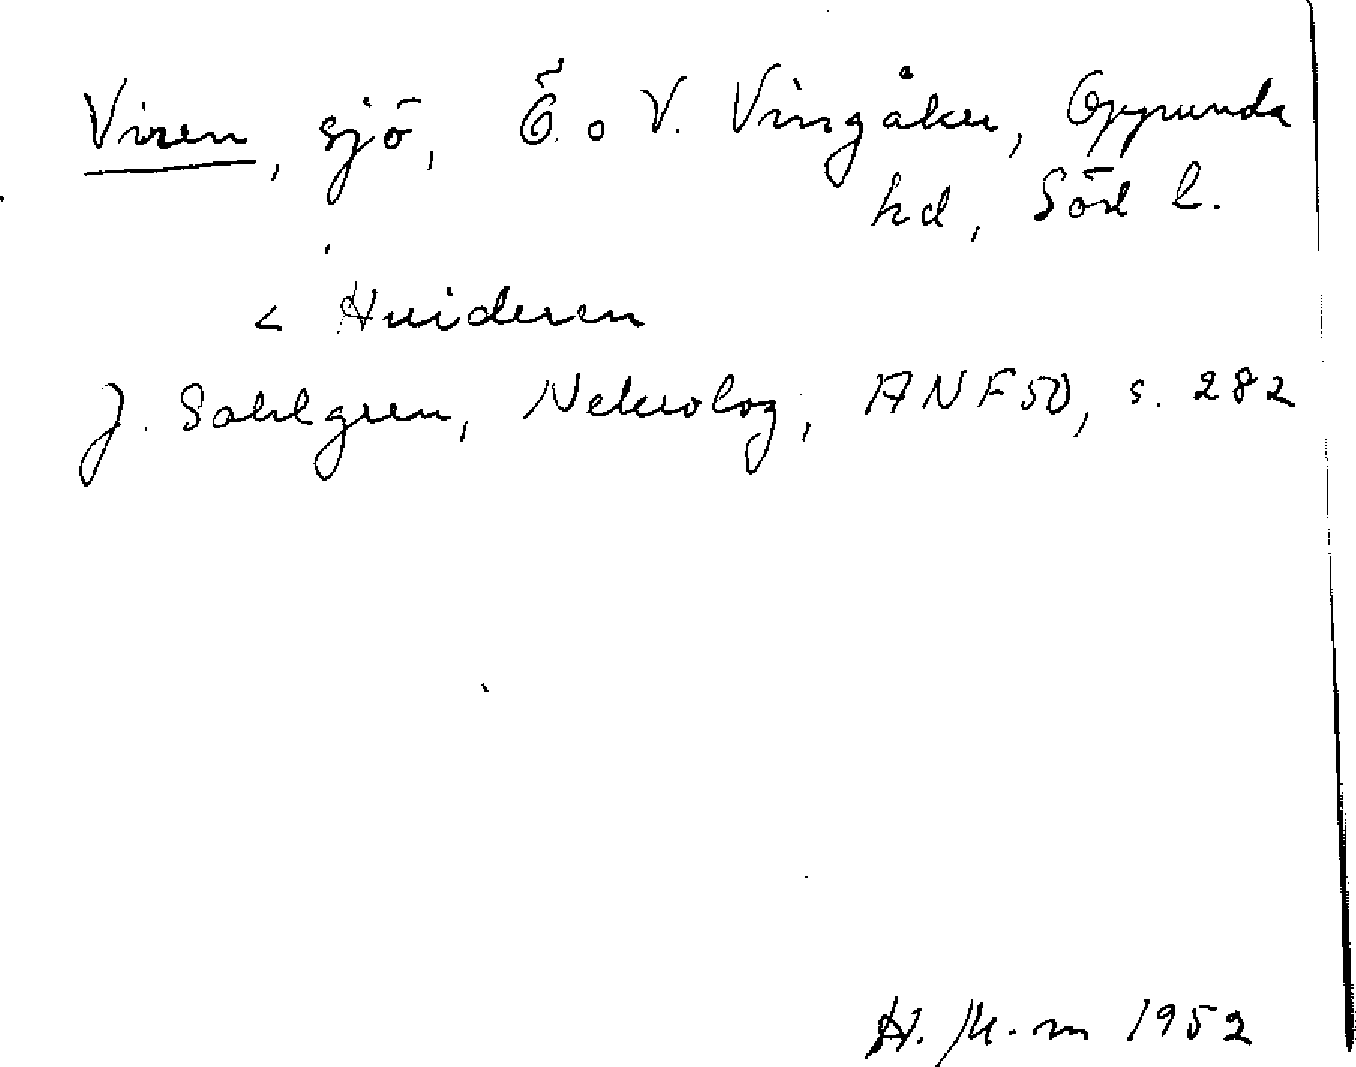 Viren, sjö, Ö. o V. Vingåker, Oppunda
hd, Söd l.
< Huideren
J. Sahlgren, Nekrolog, ANF 50, s. 282
H. M-m 1952